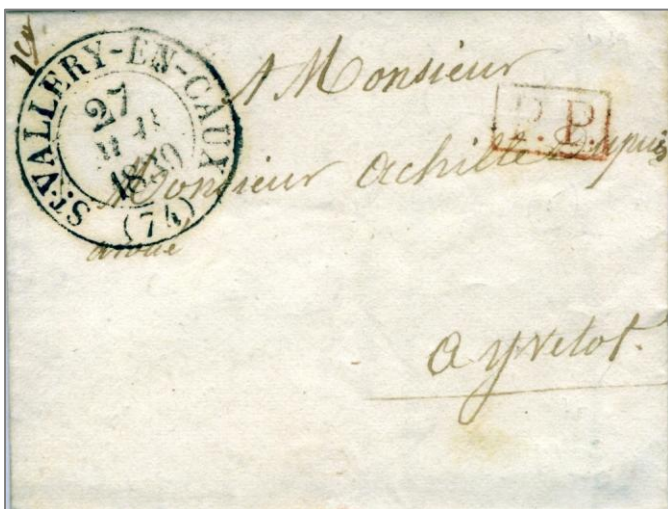 ST. VALLERY-EN-CAUX
27
1839
(74)
P.P.
A Monsieur
Monsieur Achille Dupuis
avoué
a yvetot.